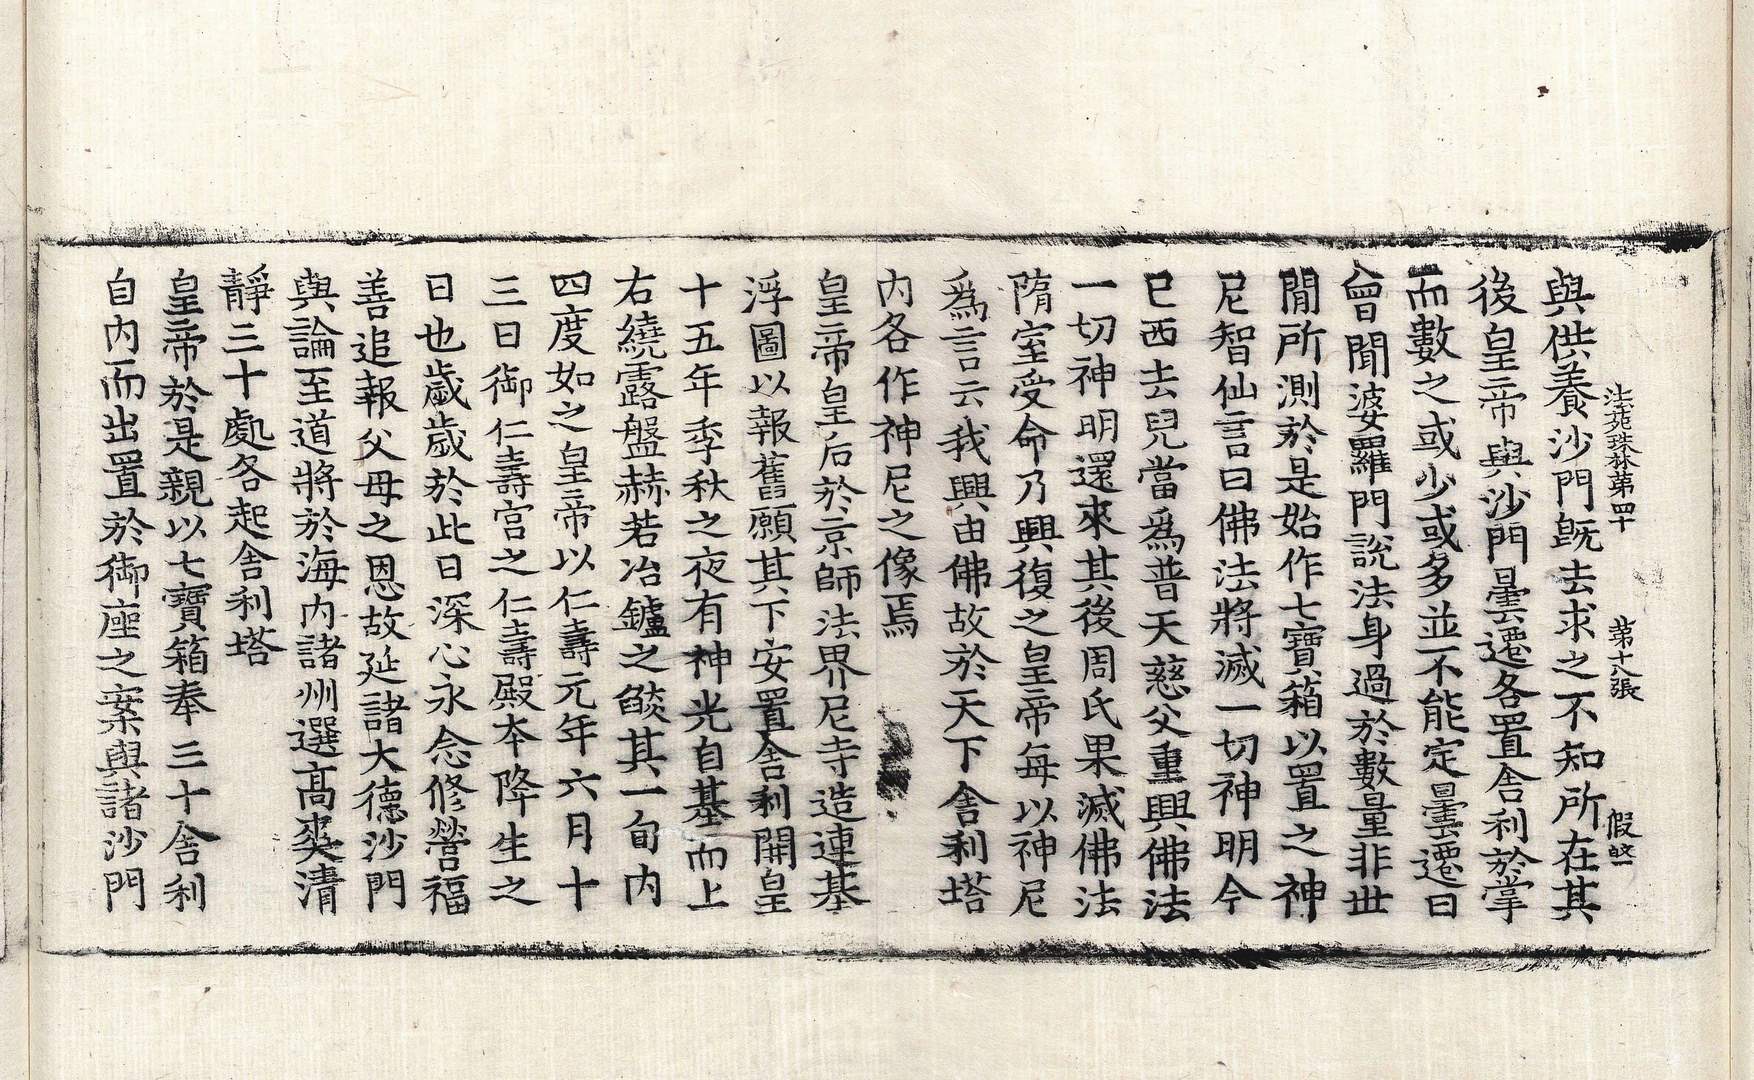 法苑珠林第四十 第十八張 假
與供養沙門旣去求之不知所在其
後皇帝與沙門曇遷各置舍利於掌
而數之或少或多並不能定曇遷曰
曾聞婆羅門說法身過於數量非世
閒所測於是始作七寶箱以置之神
尼智仙言曰佛法將滅一切神明今
已西去兒當爲普天慈父重興佛法
一切神明還來其後周氏果滅佛法
隋室受命乃興復之皇帝每以神尼
爲言云我興由佛故於天下舍利塔
內各作神尼之像焉
皇帝皇后於京師法界尼寺造連基
浮圖以報舊願其下安置舍利開皇
十五年季秋之夜有神光自基而上
右繞露盤赫若冶鑪之燄其一旬內
四度如之皇帝以仁壽元年六月十
三日御仁壽宮之仁壽殿本降生之
日也歲歲於此日深心永念修營福
善追報父母之恩故延諸大德沙門
與論至道將於海內諸州選高爽清
靜三十處各起舍利塔
皇帝於是親以七寶箱奉三十舍利
自內而出置於御座之案與諸沙門